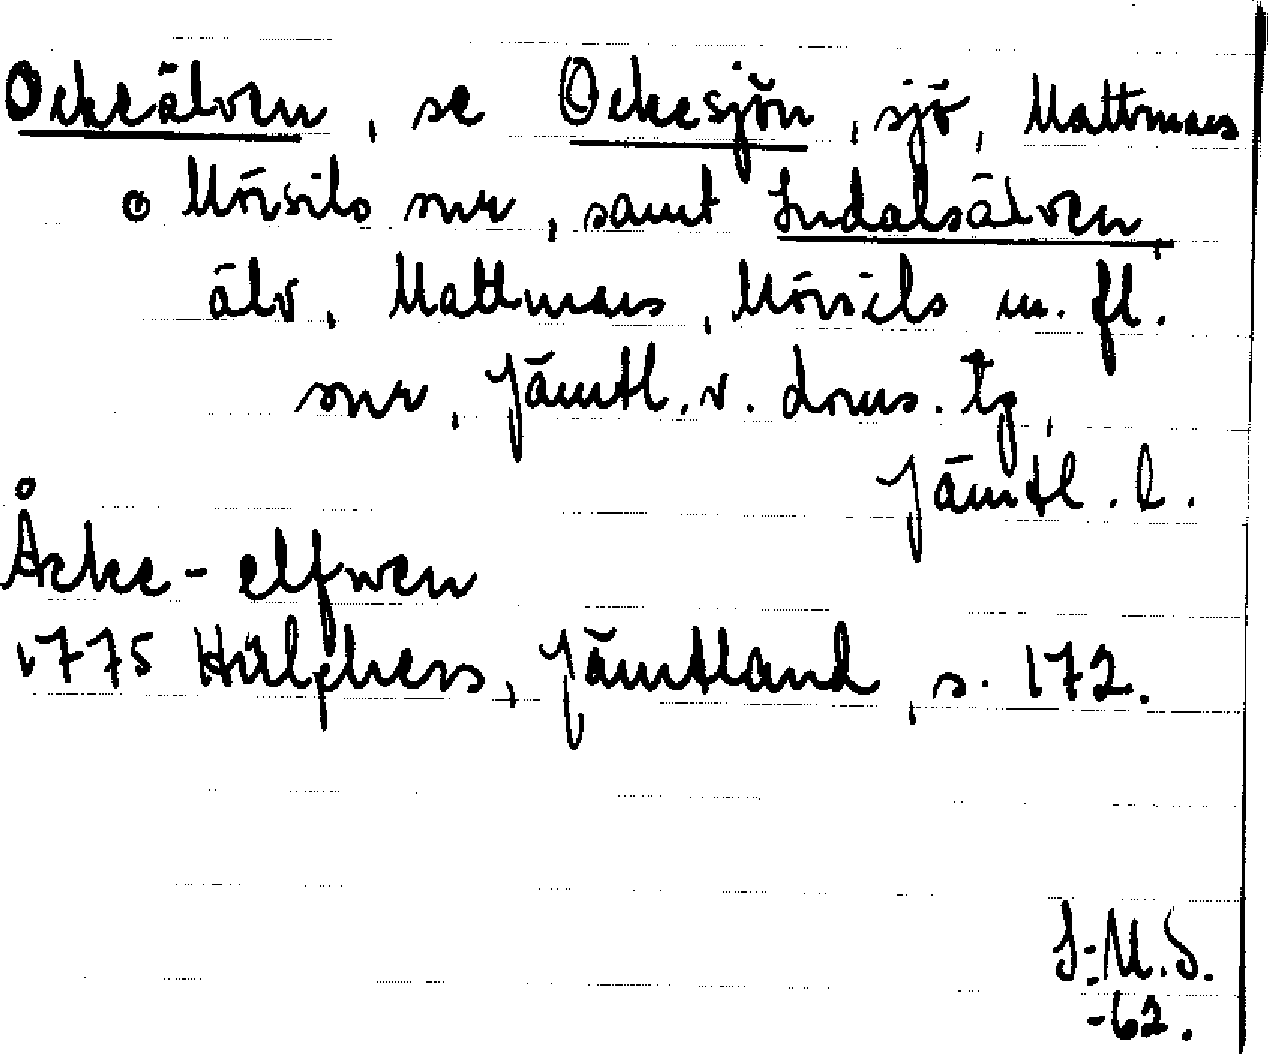 Ockeälven, se Ockesjön, sjö, Mattmars
o Mörsils snr, samt Indalsälven,
älv, Mattmars, Mörsils m. fl.
snr, Jämtl. v. doms. tg,
Jämtl. l.
Åcke-elfwen
1775 Hülphers, Jämtland, s. 172.
I-M.S.
-62.